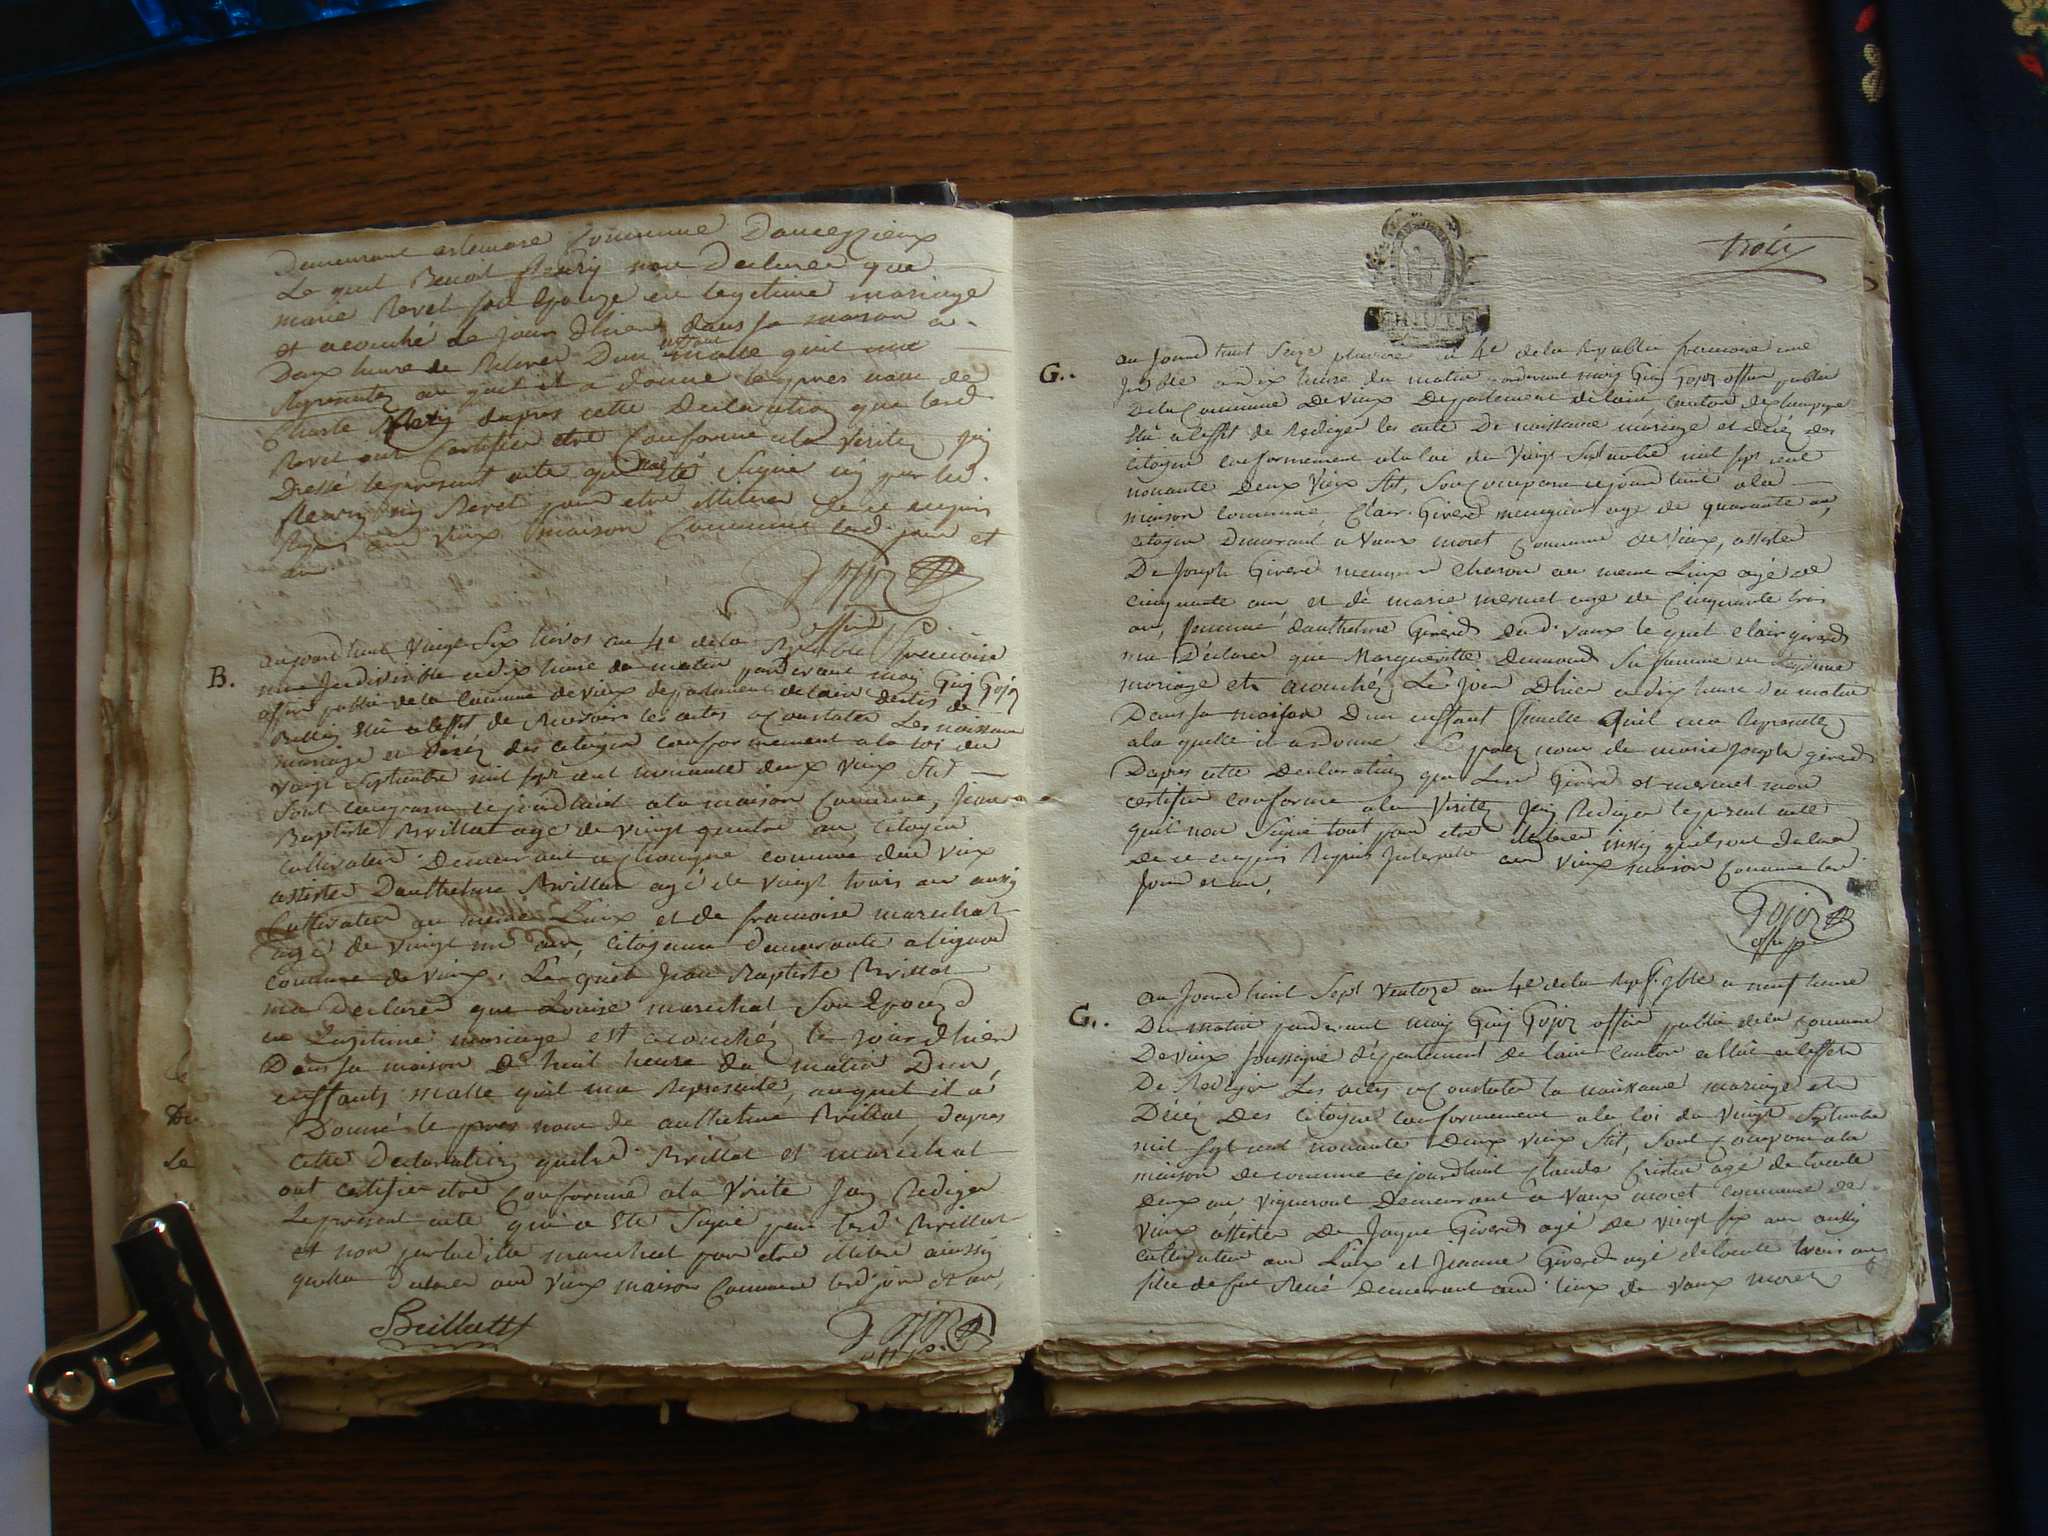 Demeurant artemare Commune Dauceyzieux
Le quel Benoit fleury nou Declarer que
marie Revet son Epouze en legitime mariage
et acouché le jour Dhier dans sa maison a
Deux heure de Relever Dun enfant malle quil ma
Representez au quel il a donne le pres nom de
Charle fleury dapres cette Declaration que lesd.
Revet ont Certifier etre Conforme ala Veritez jay
Dressé le present acte qui na été Signé ny par led.
fleury ny Revet pour etre illiterer de ce enquis
Requis aud Vieux maison Commune lesd. jour et
an
Gojoz
offier
B.
aujourd huit Vingt Six nivos an 4e dela Republe francoise
une Jndivisible adix heure du matin pardevant moy Guy Gojoz
offier public dela Commune devieux departement delain destris de
Belley Elu aleffet de Recevoir les actes a Constater Les naissance
mariage et décéz des citoyen conformement ala loi du
vingt Septembre mil sept cent nonante deux vieux Stil
Sont comparu cejourdhuit ala maison Commune, Jean
Baptiste Brillat age de vingt quatre an, citoyen
Cultivateur Demeurant a chongne commune dud vieux
assister Danthelme Brillat agé de vingt trois an aussy
Cultivateur au meme Lieux et de francoise marechat
agé de vingt un an, Citoyenne demeurante a lignod
commune de vieux. Lequel Jean Baptiste Brillat
ma declarer que Louise marechat Son Epouze
en Legitime mariage est acouchéz le jour dhier
Dans sa maison a huit heure du matin Dun
enffants malle quil ma Representé, auquel il a
Donné le pres nom de anthelme Brillat, dapres
cette Declaration que led Brillat et marechat
ont certifier etre Conforme ala Vérité Jay Rediger
Le present acte qui a Eté Signé par led. Brillat
et non par ladite marechat pour etre illitere ainssy
quella declarer aud Vieux maison Commune lesd. jour et an,
Brillatt
Gojoz
offier
trois
MINUTE
G..
au Jourd huit Seize pluviose an 4e dela Republe francoise une
Jndible a dix heure du matin pardevant moy Guy Gojoz offier public
Dela Commune Devieux Departement delain, Canton de Champagne
Elu a leffet de Rediger les acte De naissance mariage et décéz des
Citoyen conformement ala loi du Vingt Septembre mil sept cent
nonante Deux Vieux Stil, Son Comparu cejourdhuit ala
maison commune Clair Giverd menuysier age de quarante an,
Citoyen Demeurant a Vaux moret Commune de Vieux, assister
De Joseph Giverd menuysier Charon au meme Lieux agé de
Cinquante an, et de marie mermet age de Cinquante trois
an, femme danthelme Giverd dud. vaux le quel Clair giverd
ma Declarer que Margueritte dumond Sa femme en legitime
mariage et acouchéz Le Jour Dhier a dix heure du matin
Dans sa maison Dun enffant femelle Quil ma Representez
ala quelle il a donne Le prez nom de marie Josephe giverd
Dapres cette Declaration que Lesd Giverd et mermet mon
certifier conforme ala Veritez Jay Rediger le present acte
quil non Signe tout pour etre illiterer inssy quils ont declarer
de ce enquis Requis aud Vieux maison Commune lesd.
Jour et an,
Gojoz
offier
G..
au Jourd huit Sept Ventoze an 4e dela Rep f. jble a neuf heure
Du matin pardevant moy Guy Gojoz offier public dela Commune
Devieux Soussigné département de lain Canton Elu aleffet
De Rediger Les actes a Constater la naissance mariage et
Décéz Des Citoyens conformement ala loi du Vingt Septembre
mil Sept cent nonante Deux vieux Stil, Sont Comparu ala
maison de commune cejourdhuit Claude Cristin agé de trente
deux an, Vigneront Demeurant a Vaux moret Commune de
Vieux assister De Jaque Giverd agé de vingt six an aussy
cultivateur aud Lieux et Jeanne Giverd agé de trente trois an
fille de feu René Demeurant aud. lieux de Vaux moret